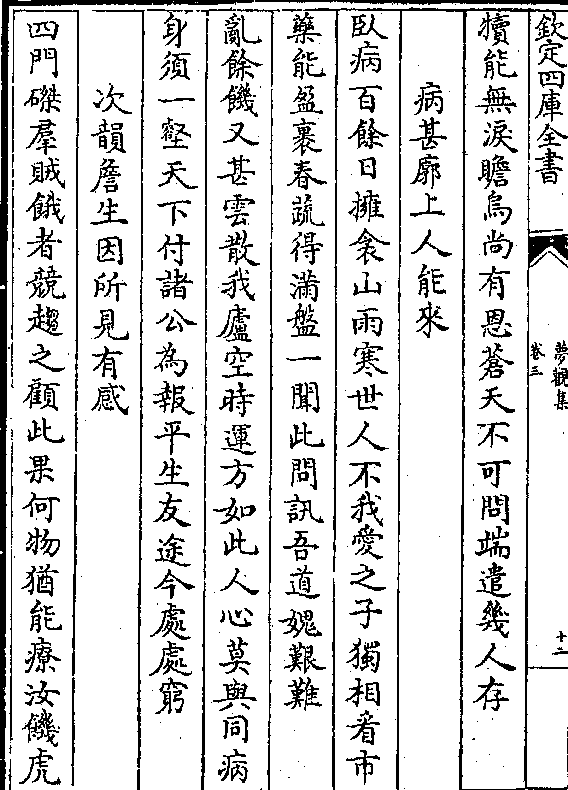 欽定四庫全書
夢觀集
卷三
十二
犢能無淚瞻烏尚有恩蒼天不可問端遣幾人存
病甚廓上人能來
臥病百餘日擁衾山雨寒世人不我愛之子獨相看市
藥能盈裹春蔬得滿盤一聞此問訊吾道媿艱難
亂餘饑又甚雲散我廬空時運方如此人心莫與同病
身須一壑天下付諸公為報平生友途今處處窮
次韻詹生因所見有感
四門磔羣賊餓者競趨之顧此果何物猶能療汝饑虎